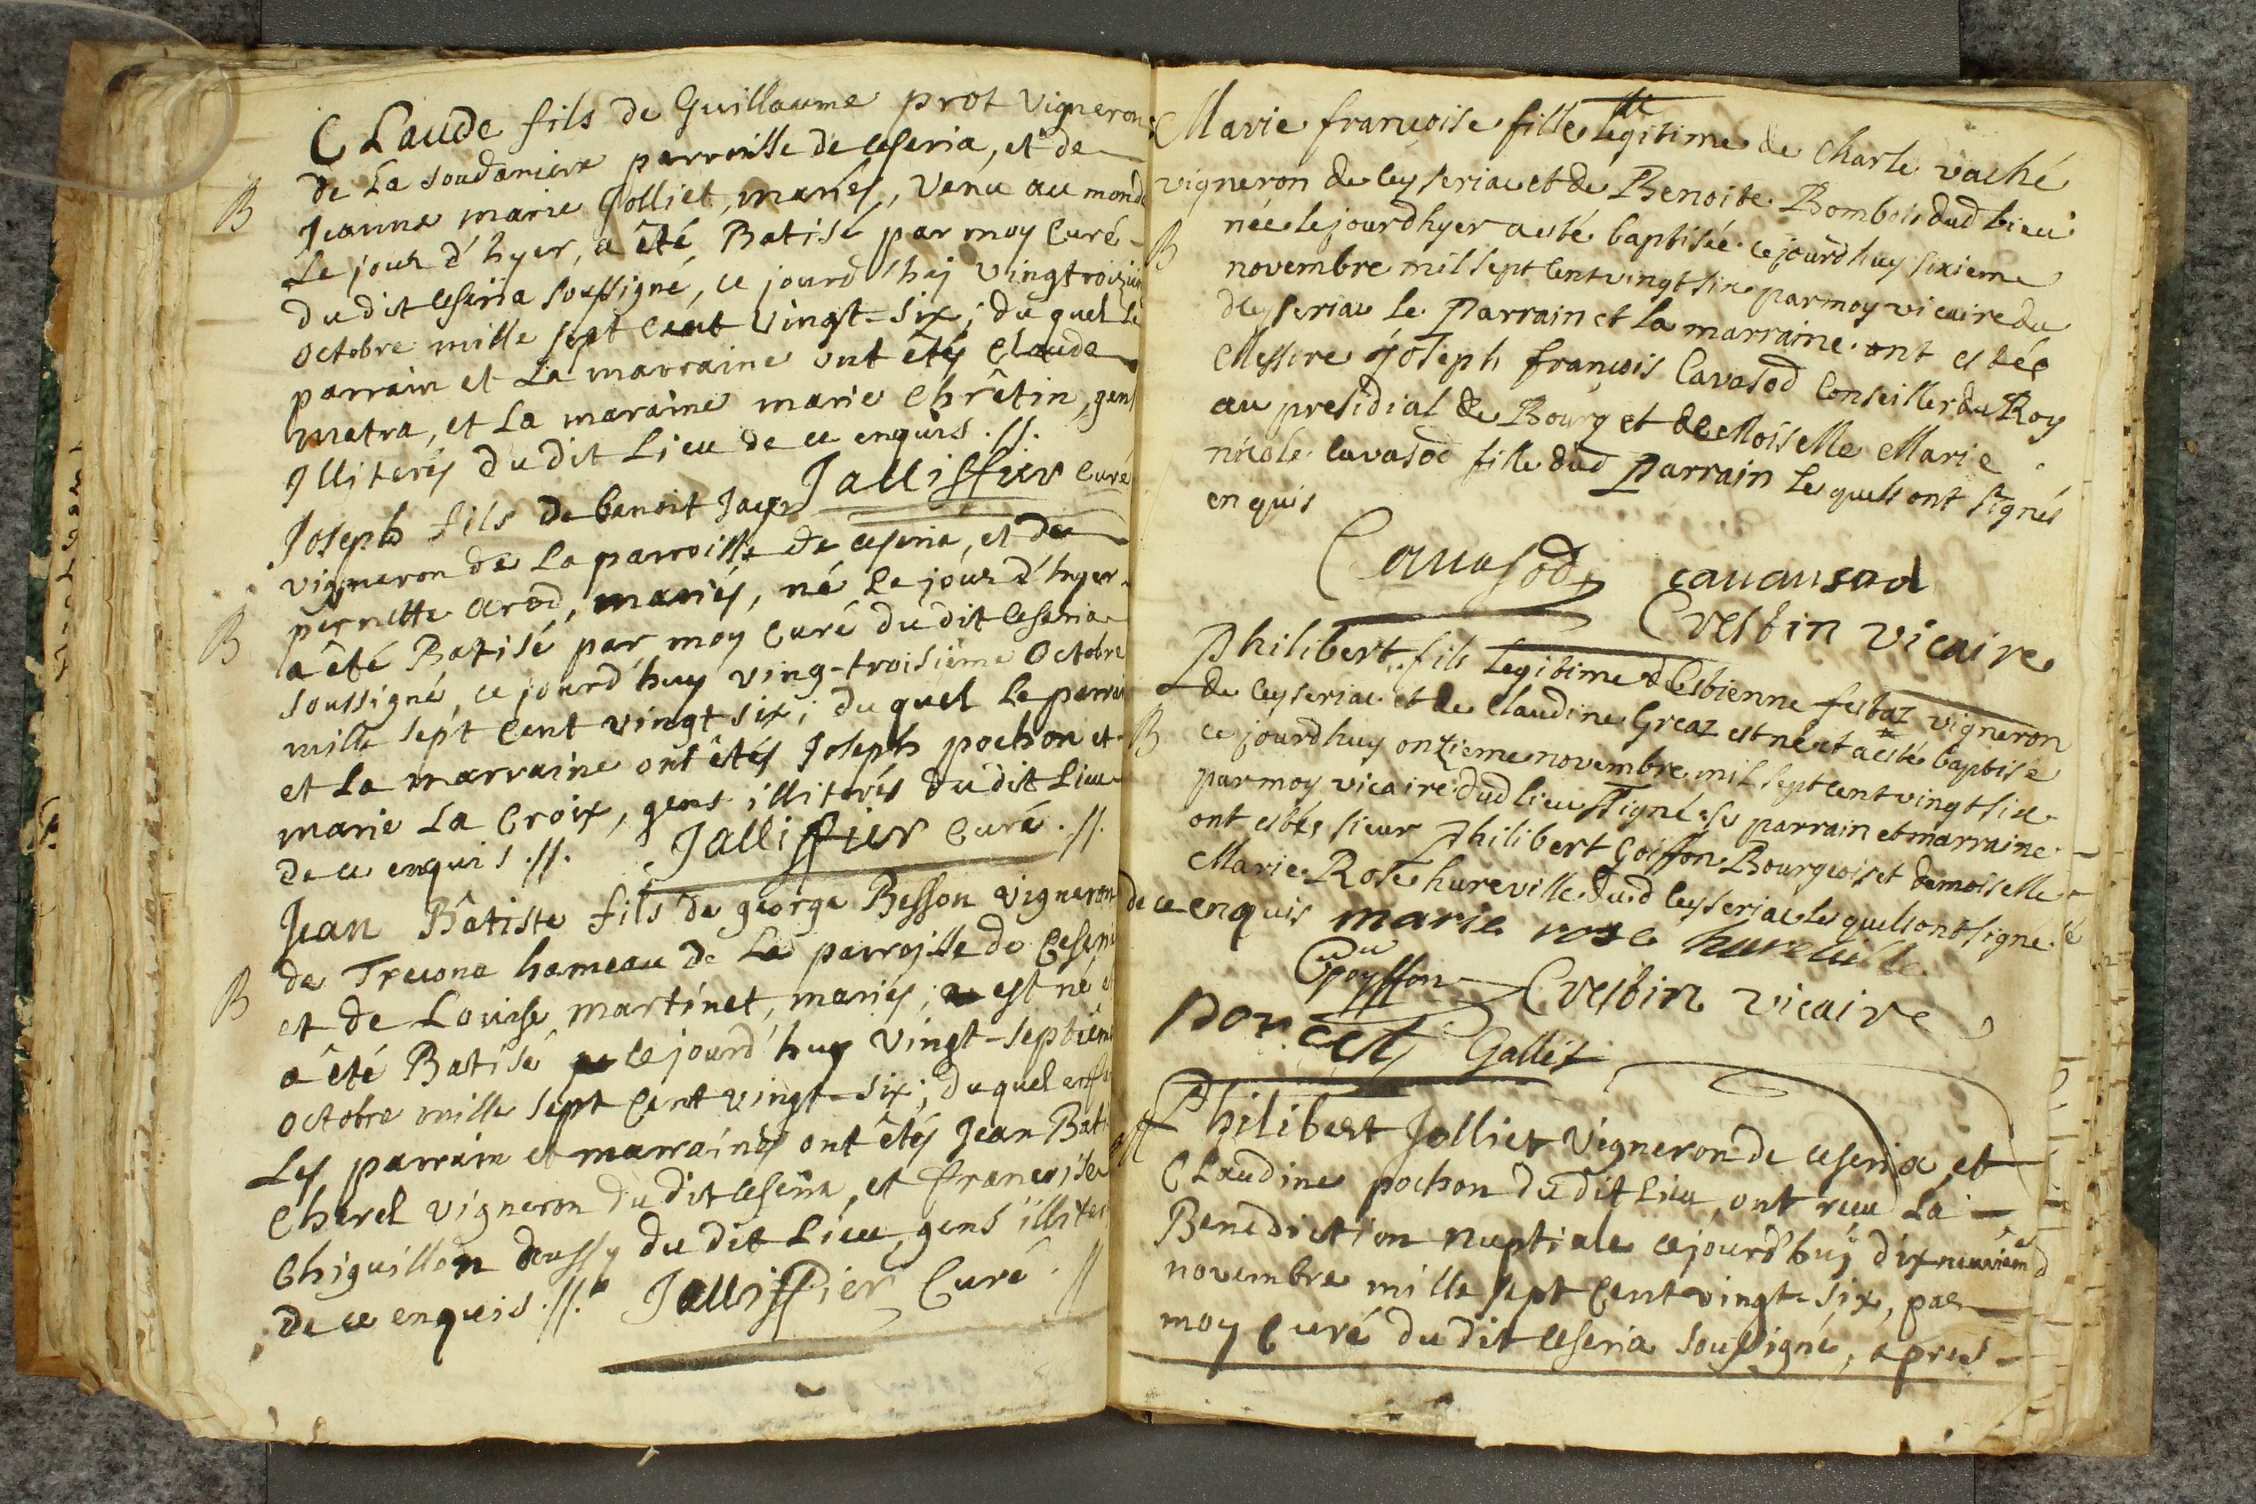 Claude fils de Guillaume prot vigneron
de La soudaniere parroisse de ceseria, et de
B
Jeanne marie Jolliet, mariés, venu au monde
Le jour d'hyer, a êté Batisé par moy Curé
du dit ceseria soussigné, ce jourd'huy vingtroizie
octobre mille sept cent vingt-six; du quel le
parrain et La marraine ont êtés claude
matra, et La maraine marie Chrêtin, gens
Illiterés du dit Lieu de ce enquis .//.
Jallissier Curé
Joseph fils de benoit
vigneron de La parroisse de ceseria, et de
pernette arod, mariés, né le jour d'hyer
B
a êté Batisé par moy Curé du dit ceseria
soussigné, ce jourd'huy ving-troisiême Octobre
mille sept cent vingt six; du quel le parrai
et La marraine ont êtés Joseph pochon et
marie La Croix, gens illiterés du dit Lieu
de ce enquis .//. Jallissier Curé .//.
Jean Bâtiste fils de george Besson vigneron
de Trecona hameau de La parroisse de Ceseria
B
et de Louise martinet, mariés; est né et
a êté Batisé ce jourd'huy vingt-septiême
octobre mille sept Cent vingt-six; du quel enfa
Les parrain et marraines ont êtés Jean Bati
Cherel vigneron du dit ceseria, et françoise
Chiguillon aussy du dit Lieu, gens illiter
de ce enquis .//. Jallissier Curé .//
Marie françoise fille legitime de Charle vaché
vigneron de Ceyseriac et de Benoite Bombois dud lieu
née le jourdhyer a esté baptisée ce jourdhuy sixieme
B
novembre mil sept cent vingt six par moy vicaire du
dCeyseriac le Parrain et la marraine ont estés
Messire joseph françois Cavasod Conseiller du Roy
au presidial de Bourg et demoiselle Marie
nicole cavasod fille dud Parrain lesquels ont signés
enquis
Cavasod cauausod
Cvestin vicaire
Philibert fils legitime dEstienne festaz vigneron
de ceyseriac et de Claudine Greaz est né et a esté baptisé
B
ce jourdhuy onzieme novembre mil sept cent vingt six
par moy vicaire dud lieu ssigné ses parrain et marraine
ont estés sieur Philibert Goiffon Bourgeois et demoiselle
Marie Rose hureville dud Ceyseriac lesquels ont signé
de ce enquis marie rose hureuille
Goyffon Cvestin vicaire
Poncet Gallet
Philibert Jolliet vigneron de ceseria, et
Claudine pochon du dit Lieu, ont reçu La
Benediction nuptiale ce jourd'huÿ dix neuviem
novembre mille sept Cent vingt-six, par
moy Curé du dit ceseria soussigné, apres